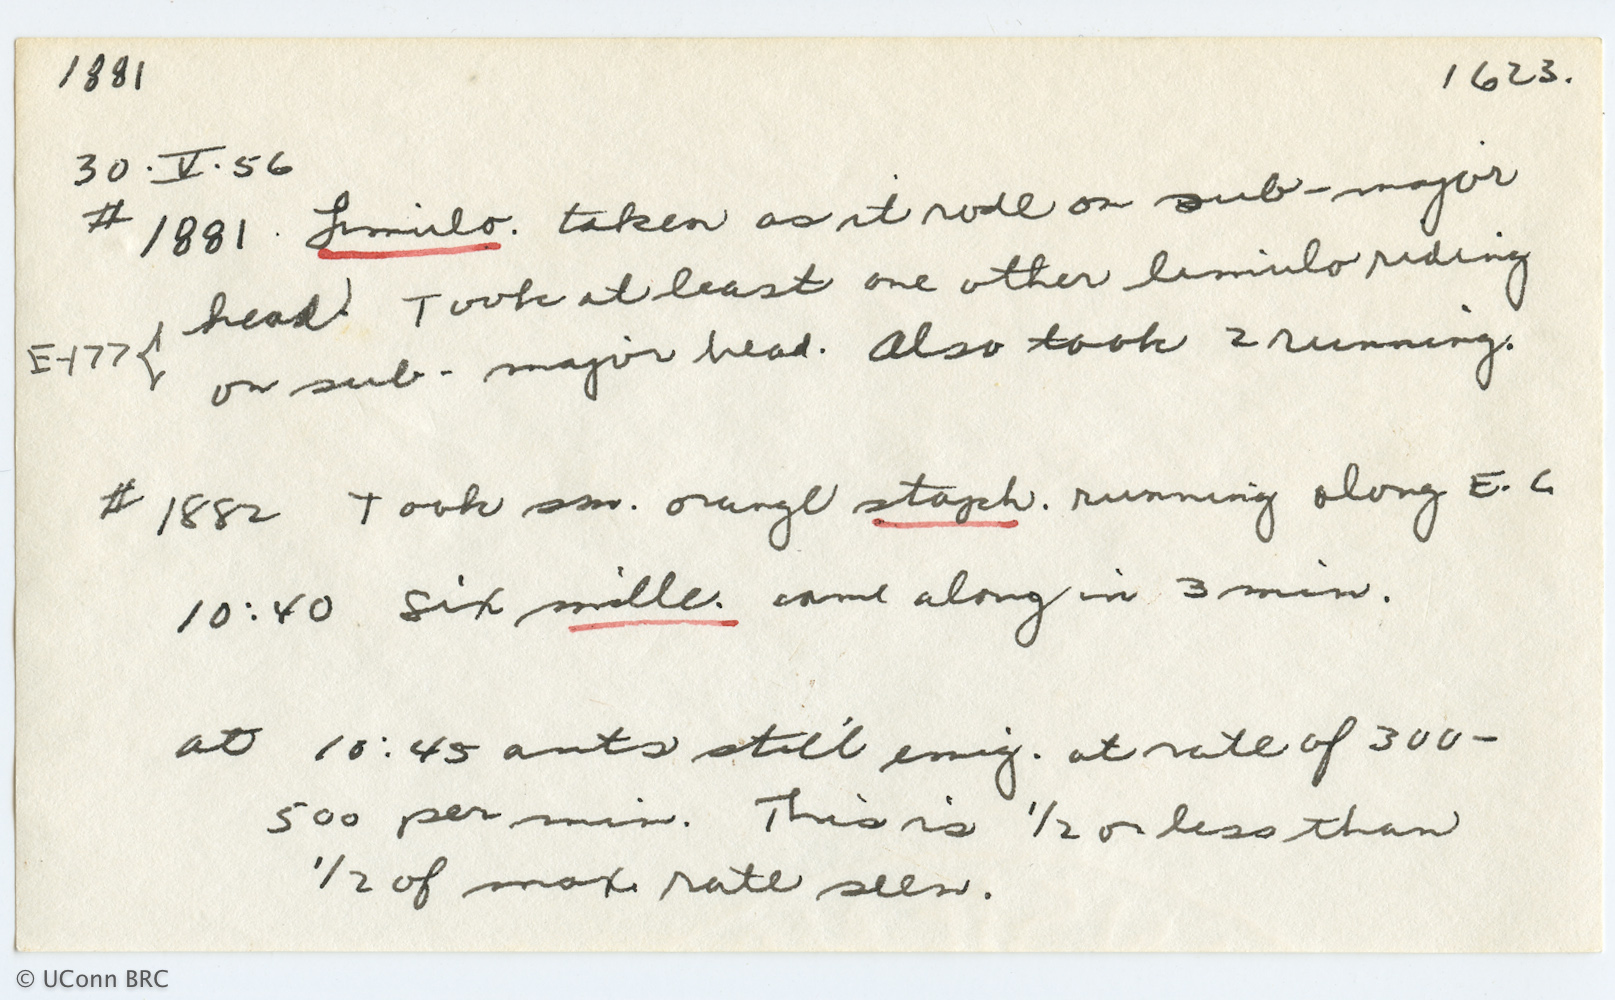 1881 1623.
30·V·56
# 1881. Limulo. taken as it rode on sub-major
head! Took at least one other limulo riding
E-177 { on sub-major head. Also took 2 running.
# 1882 Took sm. orange staph. running along E.C
10:40 Six mille. came along in 3 min.
at 10:45 ants still emig. at rate of 300-
500 per min. This is 1/2 or less than
1/2 of max. rate seen.
© UConn BRC